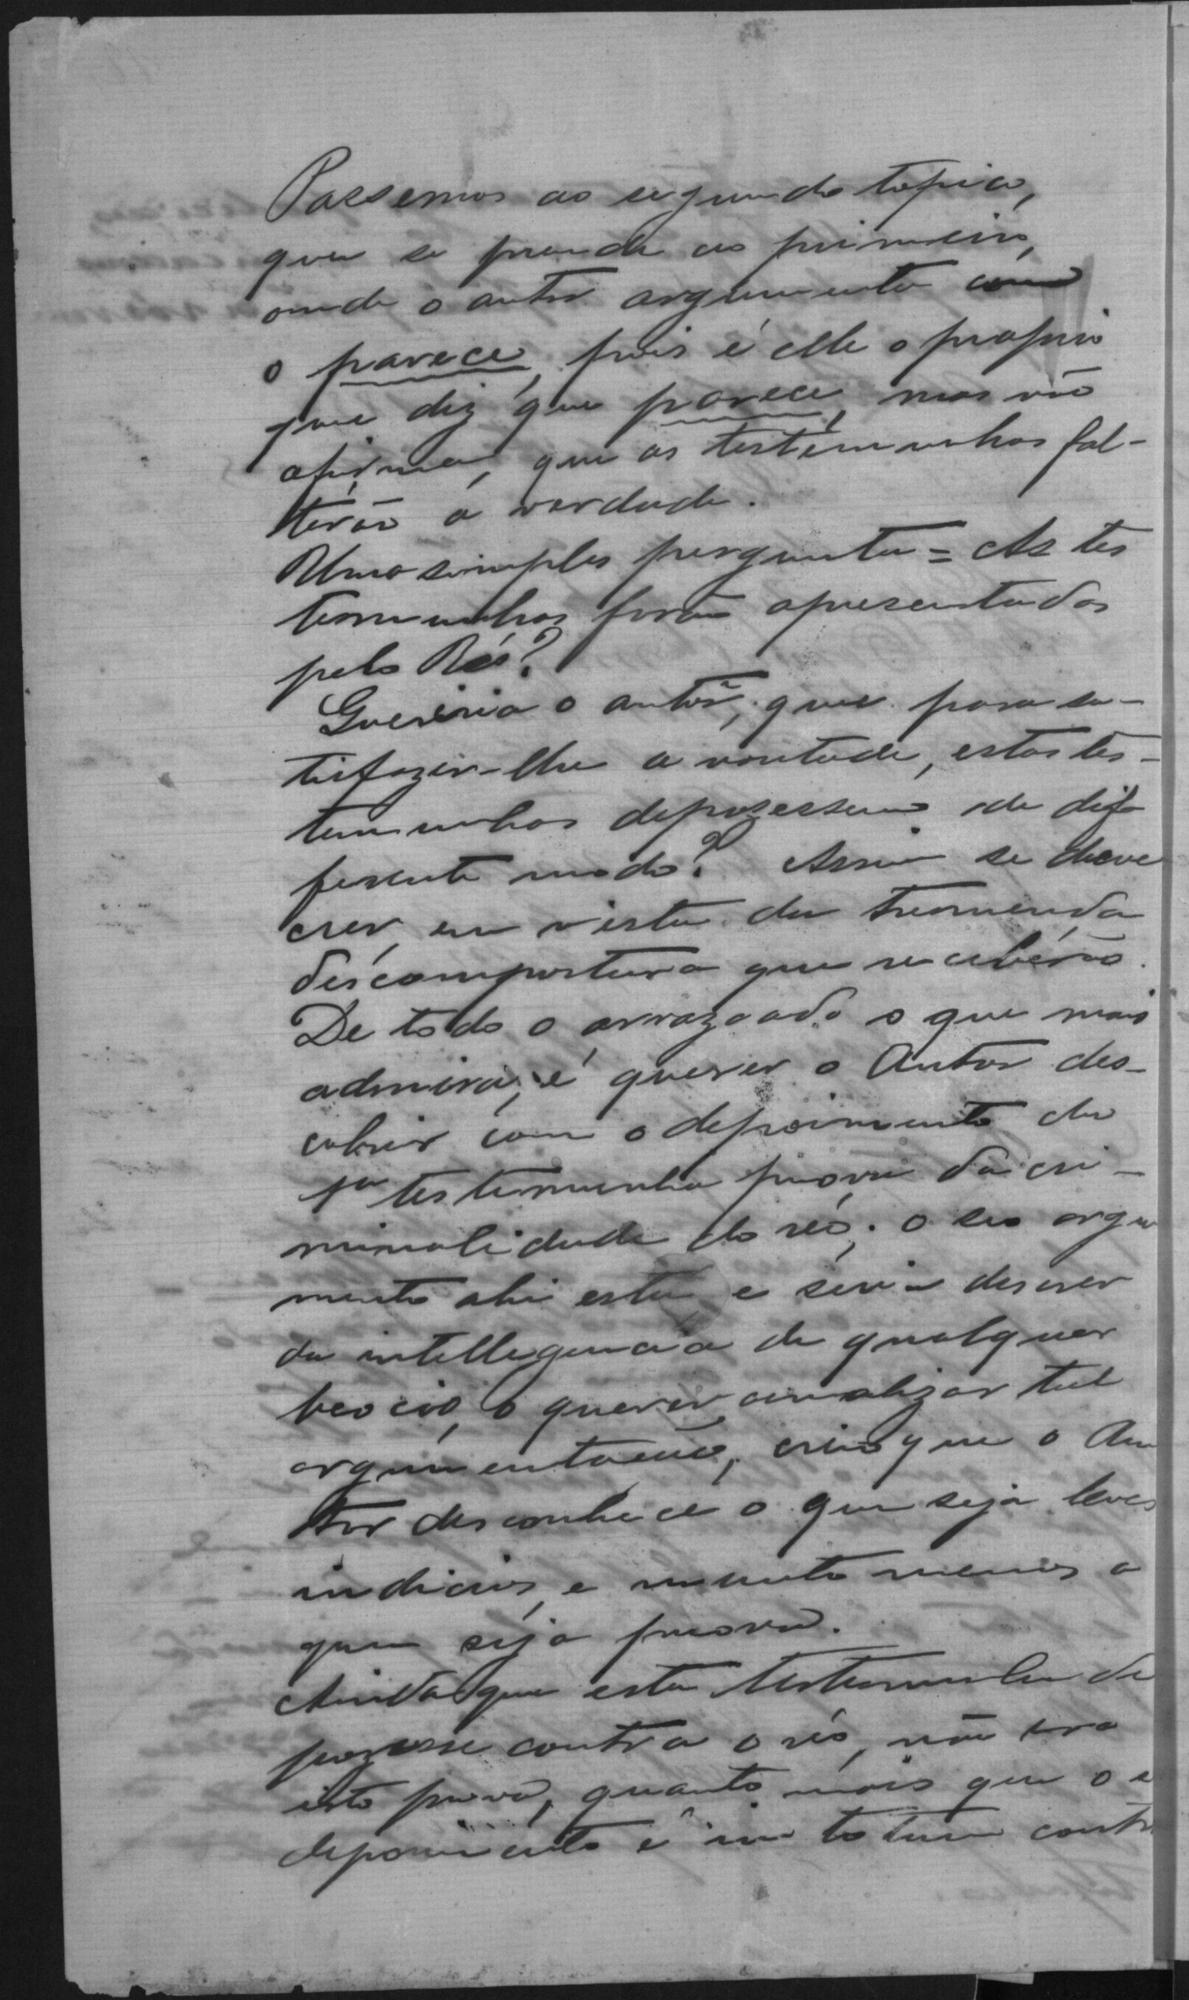 Passemos ao segundo topico,
que se prende ao primeiro,
onde o autor argumenta com
o parece, pois é elle o proprio
que diz que parece, mas não
afirma, que as testemunhas fal-
terão a verdade.
Uma simples pergunta = As tes
temunhas forão apresentadas
pelo Réo?
Quereria o autor, que para sa-
tisfazer-lhe a vontade, estas tes-
temunhas depozessem de dif
ferente modo? Assim se deve
crer, em vista da tremenda
descompostura que receberão.
De todo o arrazoado o que mais
admira, é querer o Autor des-
cobrir com o depoimento da
1ª testemunha prova da cri-
minalidade do réo; o seo argu
mento ahi está, e seria descrer
da intellegencia de qualquer
beocio, o querer analizar tal
argumentação, creio que o Au
tor desconhece o que seja leves
indicios, e muito menos o
que seja prova.
Ainda que esta testemunha de
pozesse contra o réo, não era
isto prova, quanto mais que o s
depoimento é in totum contr